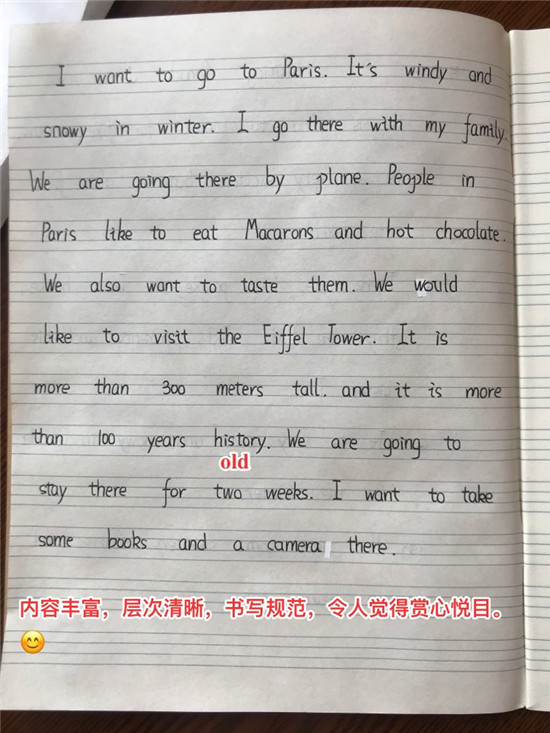 I want to go to Paris. It's windy and
snowy in winter. I go there with my family.
We are going there by plane. People in
Paris like to eat Macarons and hot chocolate.
We also want to taste them. We would
like to visit the Eiffel Tower. It is
more than 300 meters tall. and it is more
than 100 years history. We are going to
old
stay there for two weeks. I want to take
some books and a camera there.
内容丰富，层次清晰，书写规范，令人觉得赏心悦目。
😊